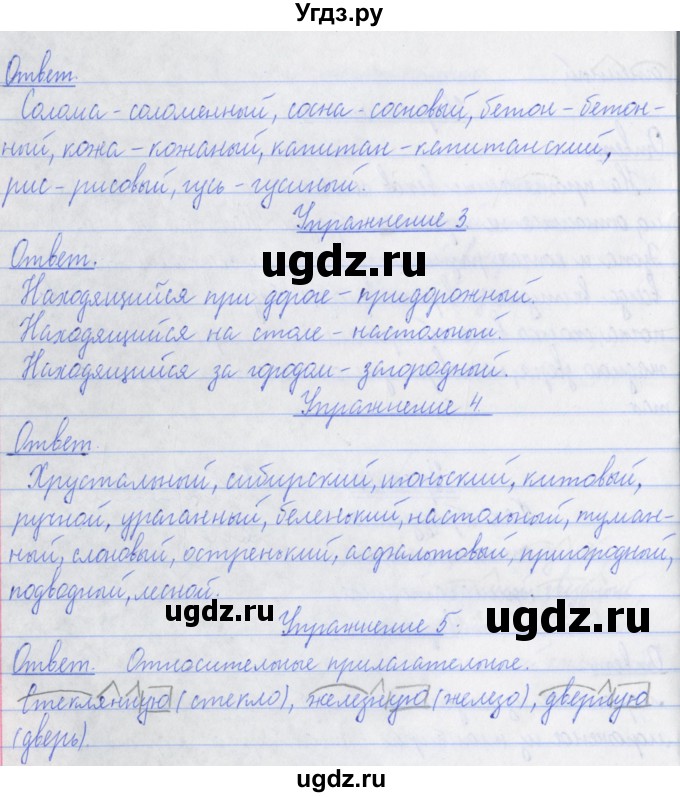 Угдз.ру
Ответ.
Солома – соломенный, сосна – сосновый, бетон – бетон-
ный, кожа – кожаный, капитан – капитанский,
рис – рисовый, гусь – гусиный.
Упражнение 3
ugdz.ru
ugdz.ru
Ответ.
Находящийся при дороге – придорожный.
Находящийся на столе – настольный.
Находящийся за городом – загородный.
Упражнение 4.
Ответ.
Хрустальный, сибирский, июньский, китовый,
ручной, ураганный, беленький, настольный, туман-
ный, слоновый, остренький, асфальтовый, пригородный,
подводный, лесной.
ugdz.ru
ugdz.ru
Упражнение 5.
Ответ. Относительные прилагательные.
Стеклянную (стекло), железную (железо), дверную
(дверь).
ugdz.ru